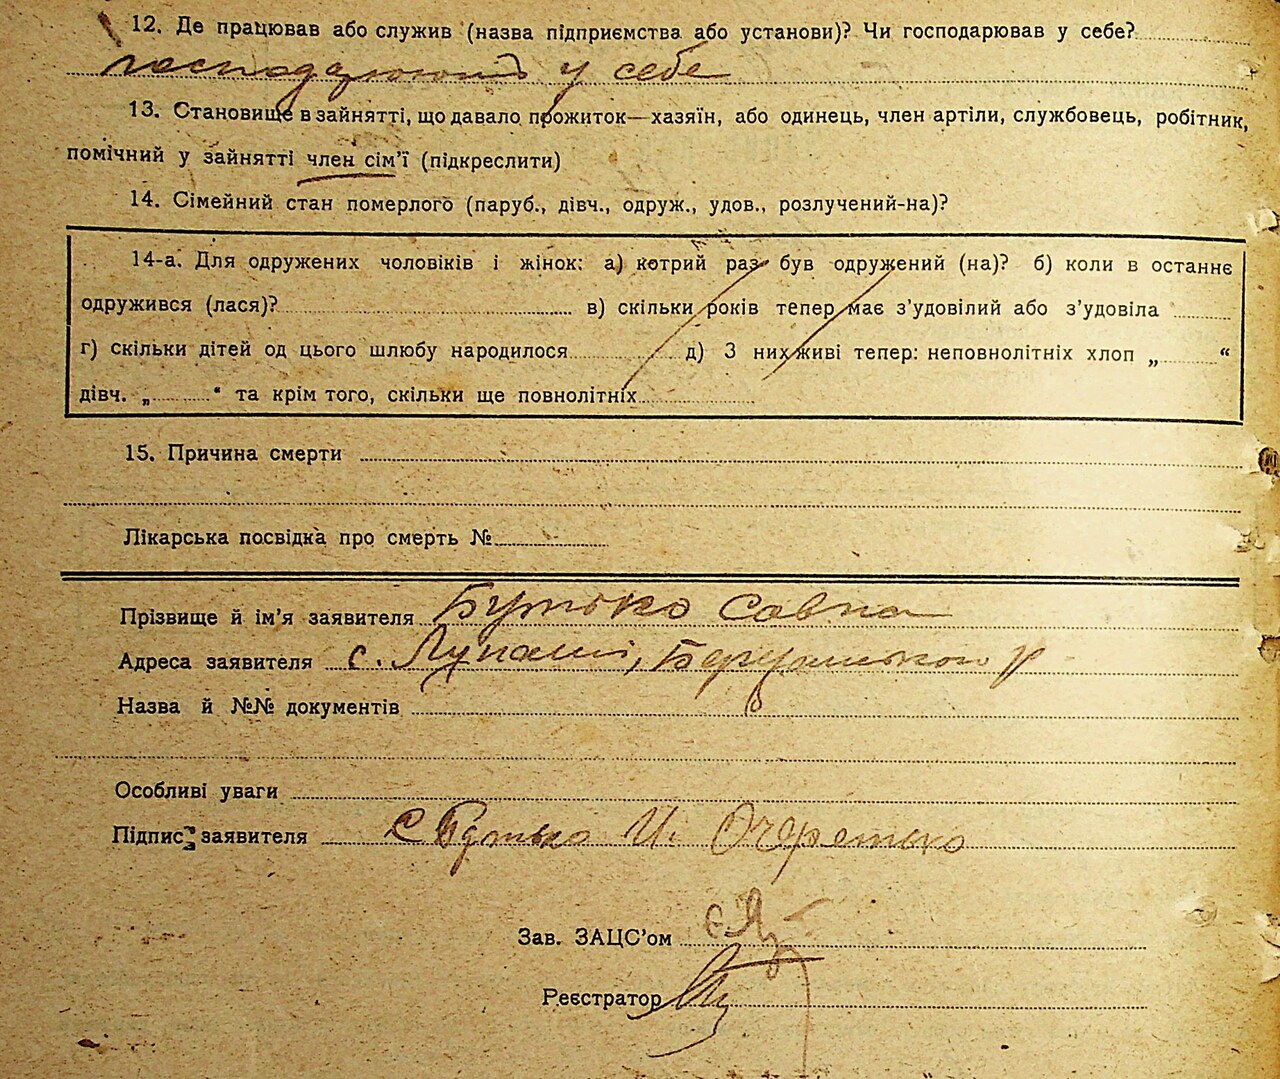 12. Де працював або служив (назва підприємства або установи)? Чи господарював у себе?
господарюють у себе
13. Становище в зайнятті, що давало прожиток—хазяїн, або одинець, член артіли, службовець, робітник,
помічний у зайнятті член сім'ї (підкреслити)
14. Сімейний стан померлого (паруб., дівч., одруж., удов., розлучений-на)?
14-а. Для одружених чоловіків і жінок: а) котрий раз був одружений (на)? б) коли в останнє
одружився (лася)? в) скільки років тепер має з'удовілий або з'удовіла
г) скільки дітей од цього шлюбу народилося д) З них живі тепер: неповнолітніх хлоп „ “
дівч. „ “ та крім того, скільки ще повнолітніх
15. Причина смерти
Лікарська посвідка про смерть №
Прізвище й ім'я заявителя Бутько Савка
Адреса заявителя с. Лупаші,
Назва й №№ документів
Особливі уваги
Підпис заявителя С Бутько И. Очеретько
Зав. ЗАЦС'ом
Реєстратор